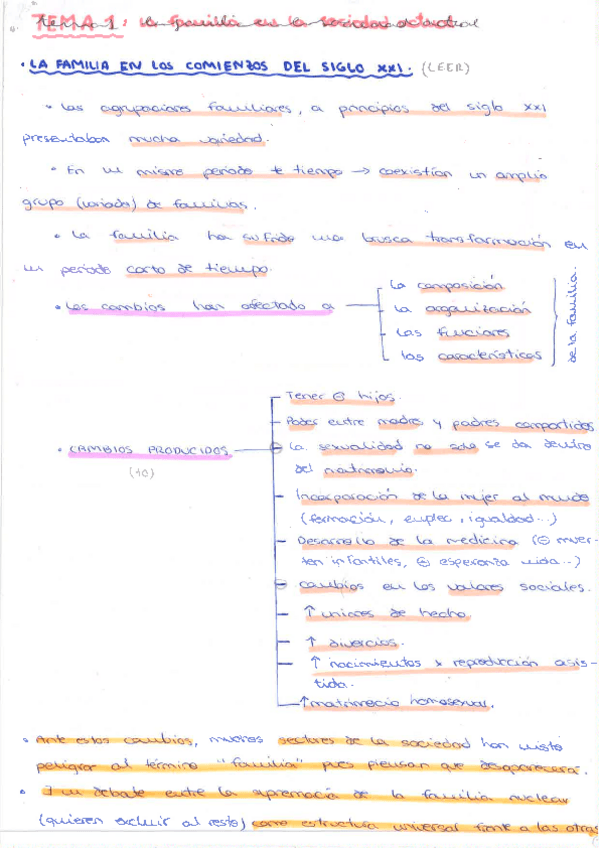 TEMA 1: la familia en la sociedad actual
· LA FAMILIA EN LOS COMIENZOS DEL SIGLO XXI. (LEER)
· Las agrupaciones familiares, a principios del siglo XXI
presentaban mucha variedad.
· En un mismo periodo de tiempo → coexistían un amplio
grupo (variado) de familias.
· La familia ha sufrido una brusca transformación en
un periodo corto de tiempo.
· Los cambios han afectado a
la composición
la organización
las funciones
las características
de la familia.
· CAMBIOS PRODUCIDOS
(10)
Tener ⊖ hijos.
Poder entre madres y padres compartidos
La sexualidad no solo se da dentro
del matrimonio.
Incorporación de la mujer al mundo
(formación, empleo, igualdad...)
Desarrollo de la medicina (⊖ muer-
tes infantiles, ⊕ esperanza vida...)
cambios en los valores sociales.
↑ uniones de hecho.
↑ divorcios.
↑ nacimientos x reproducción asis-
tida.
↑ matrimonio homosexual.
· Ante estos cambios, muchos sectores de la sociedad han visto
peligrar al término "familia" pues piensan que desaparecerá.
· ∃ un debate entre la supremacía de la familia nuclear
(quieren excluir al resto) como estructura universal frente a las otras